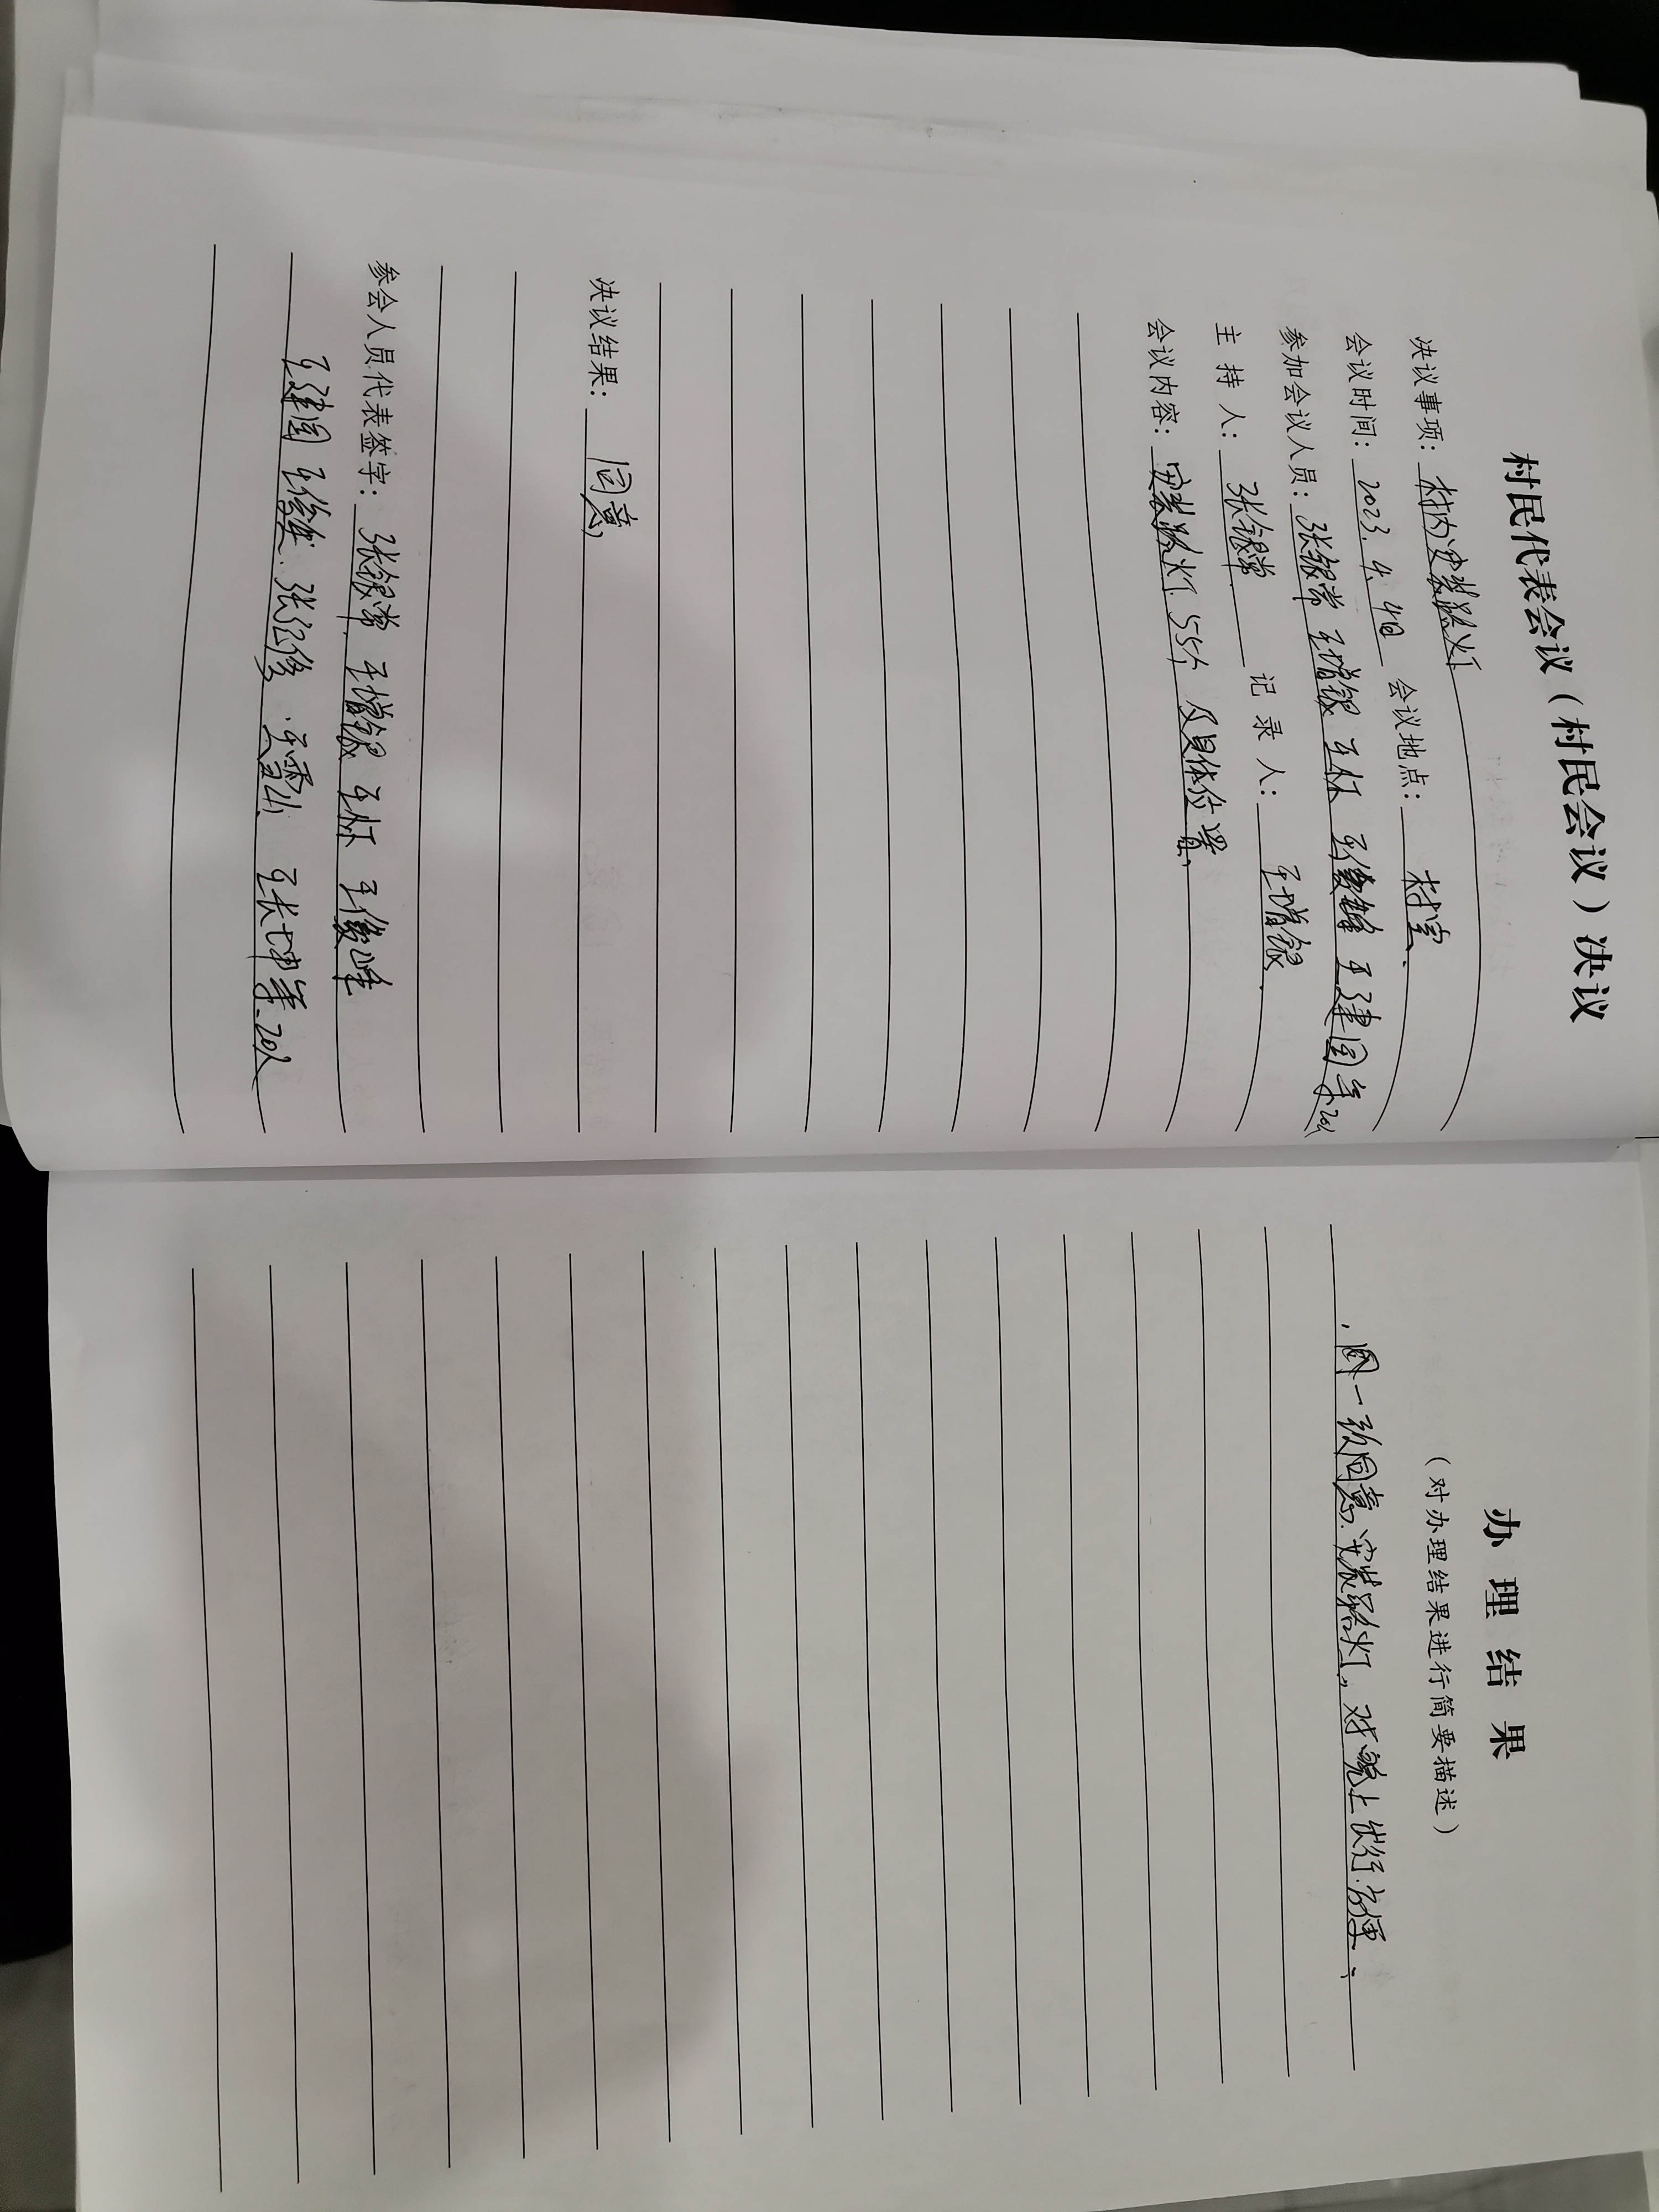 村民代表会议（村民会议）决议
决议事项：村内安装路灯
会议时间：2023.4.4日 会议地点：村室.
参加会议人员：张银常 王增银 王怀 王俊峰 王建国等20人
主持人：张银常. 记录人：王增银.
会议内容：安装路灯55个 及具体位置.
决议结果：同意
参会人员代表签字：张银常. 王增银 王怀 王俊峰
王建国 张 王雪山. 王长坤等.20人
办理结果
（对办理结果进行简要描述）
一致同意.安装路灯。对晚上出行.方便.